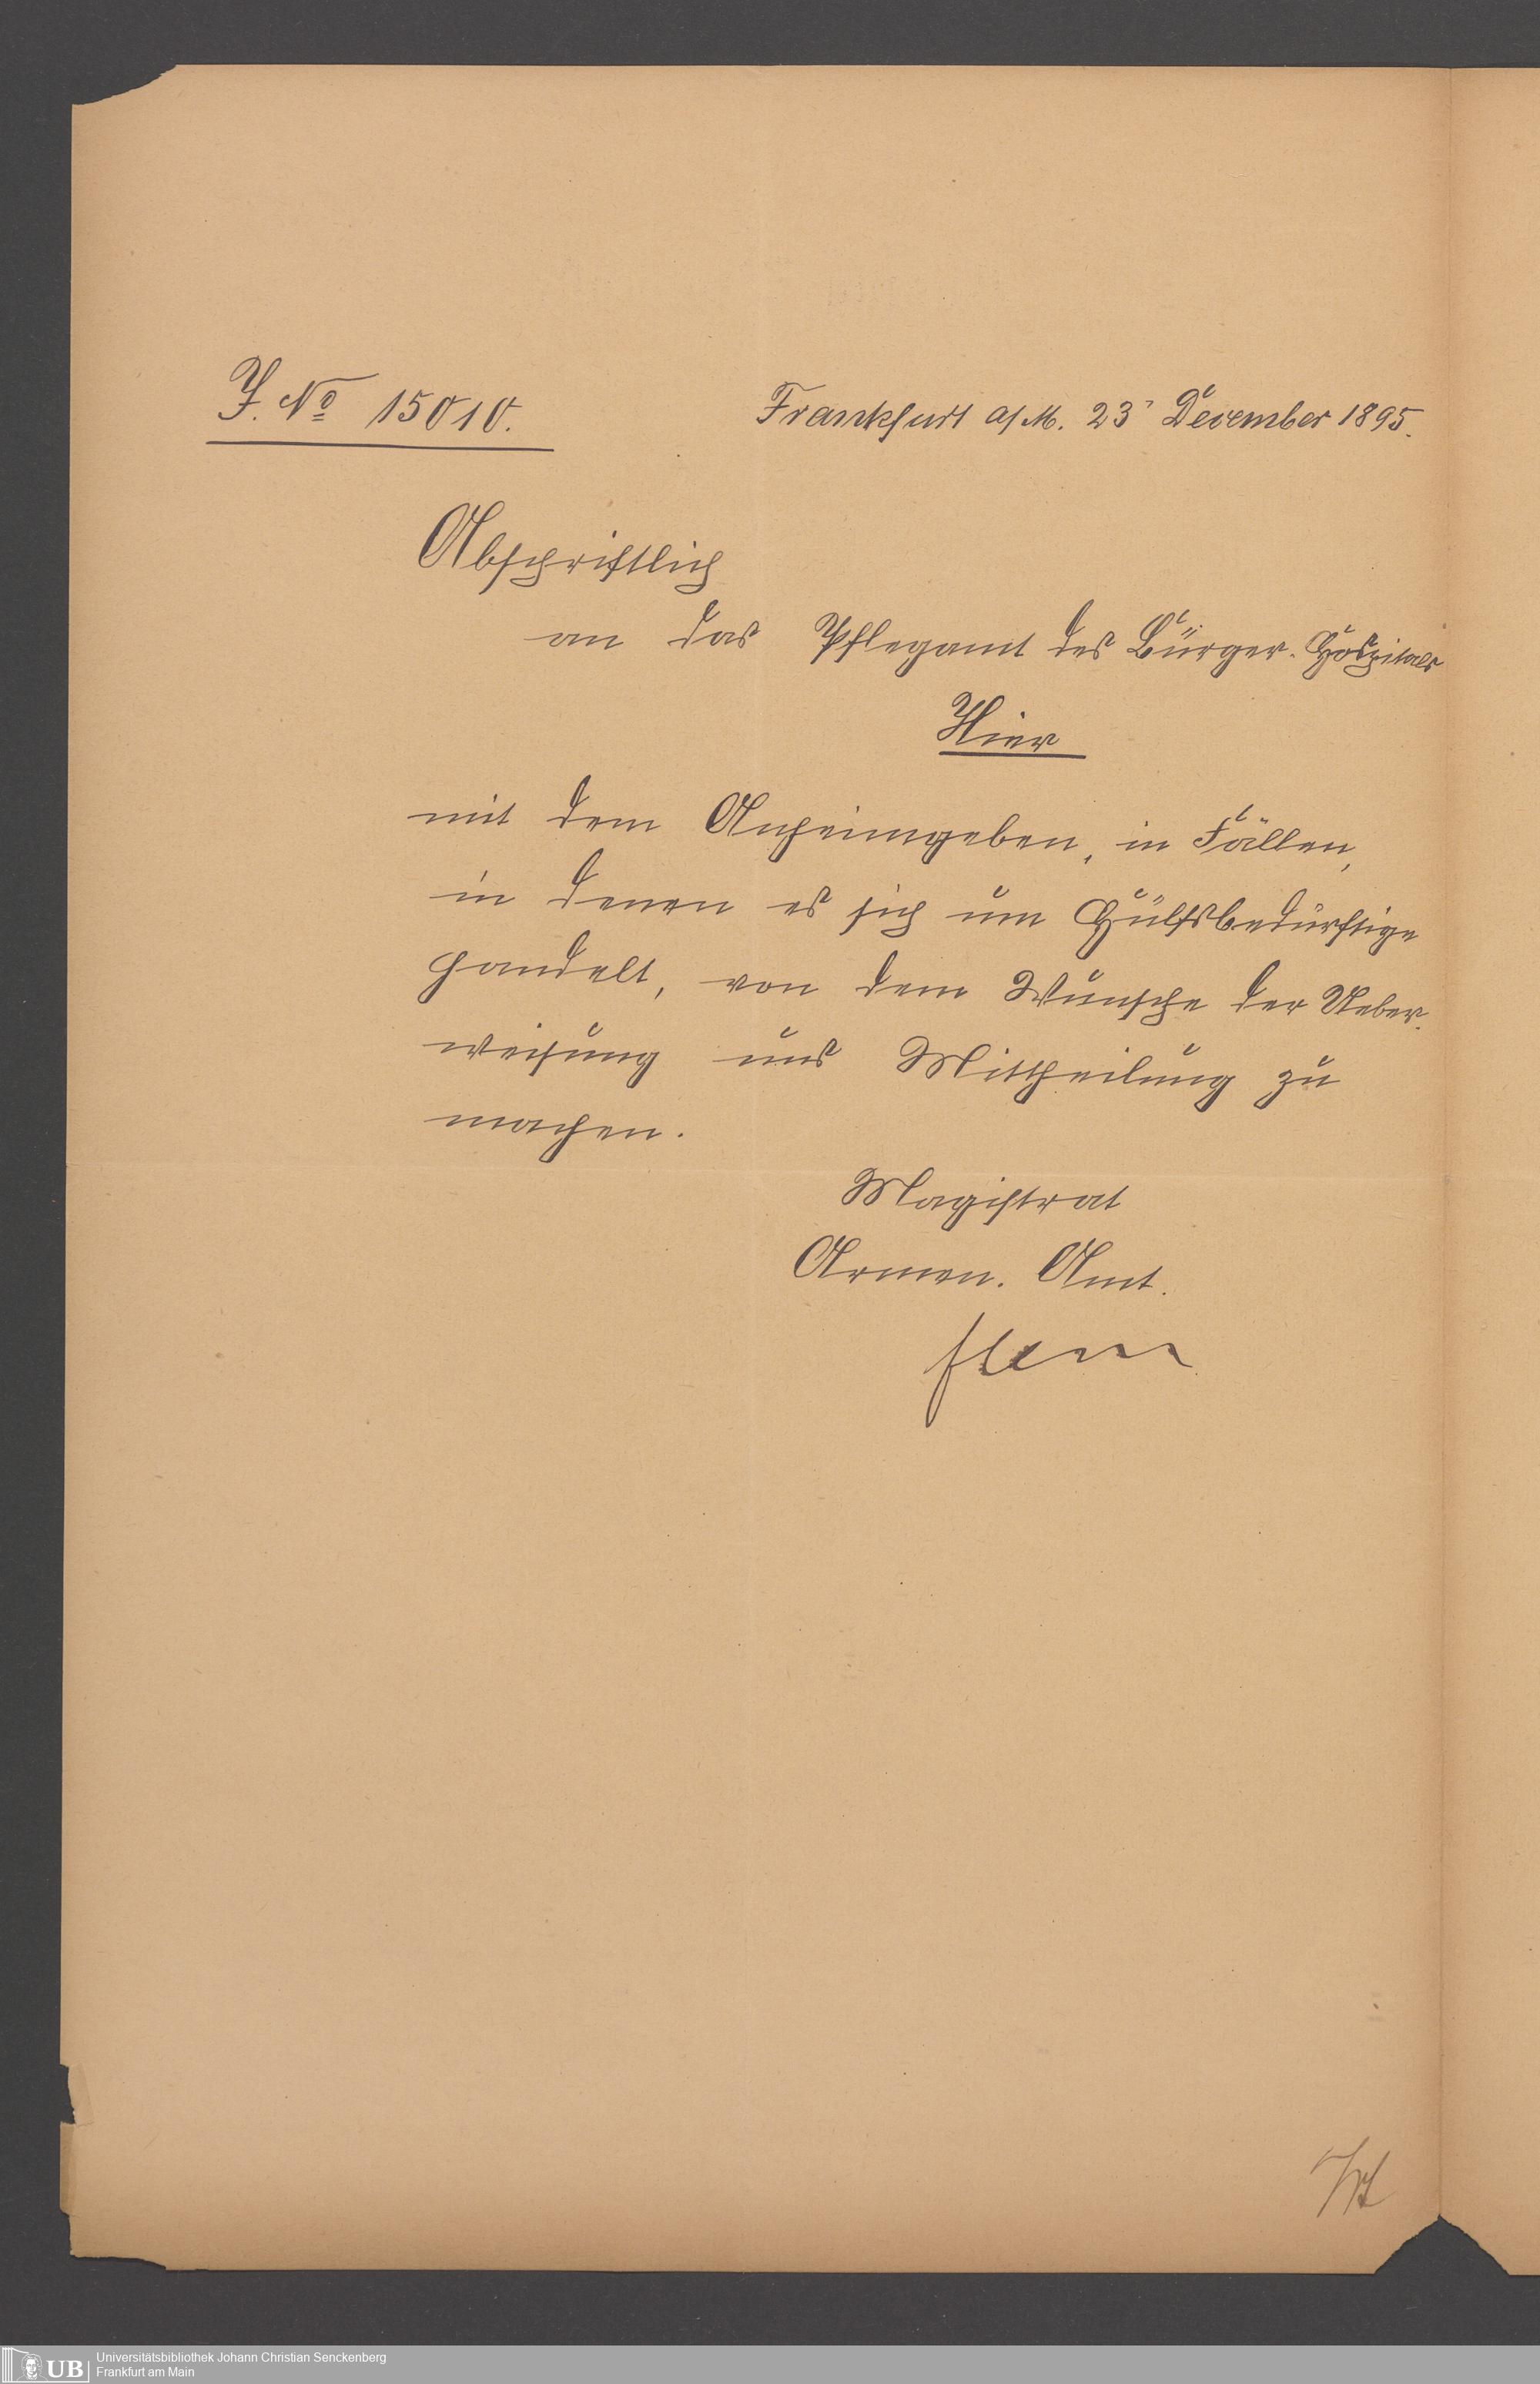 J. No 15010.
Frankfurt a/M. 23' December 1895.
Abschriftlich
an das Pflegamt des Bürger-Hospitals
Hier
mit dem Anheimgeben, in Fällen,
in denen es sich um Hülfsbedürftige
handelt, von dem Wunsche der Ueber-
weisung uns Mittheilung zu
machen.
Magistrat
Armen-Amt.
UB
Universitätsbibliothek Johann Christian Senckenberg
Frankfurt am Main